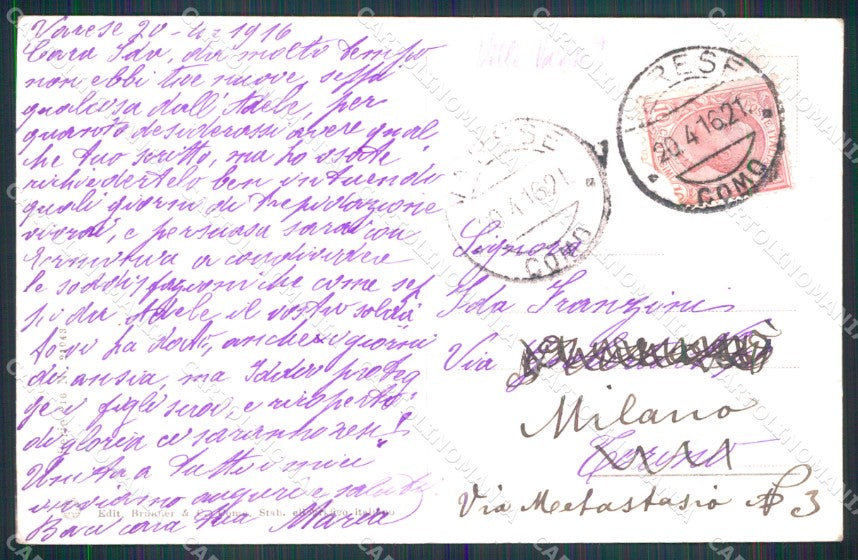 Varese 20-4-1916
Cara Ida, da molto tempo
non ebbi tue nuove, seppi
qualcosa dall'Adele, per
quanto desiderassi avere qual
che tuo scritto, ma ho osato
richiedertelo ben intuendo
quali giorni di trepidazione
vivrai, e persuasa sarai con
Ermut a condividere
le soddisfazioni che come sep
pi da Adele, il vostro solda
to vi ha dati, anche giorni
di ansia, ma Iddio proteg
ge i figli suoi, e ricoperto
di gloria ce saranno resi!
Unita a tutti i miei
inviamo auguri e saluti
Baci cara tua Maria
Edit. Brunner & C., Como. Stab. eliografico italiano
VARESE
20.4.16.21
COMO
VARESE
20.4.16.21
COMO
Signora
Ida Franzini
Via
Milano
Torino
Via Metastasio N° 3
CARTOLINOMANIA